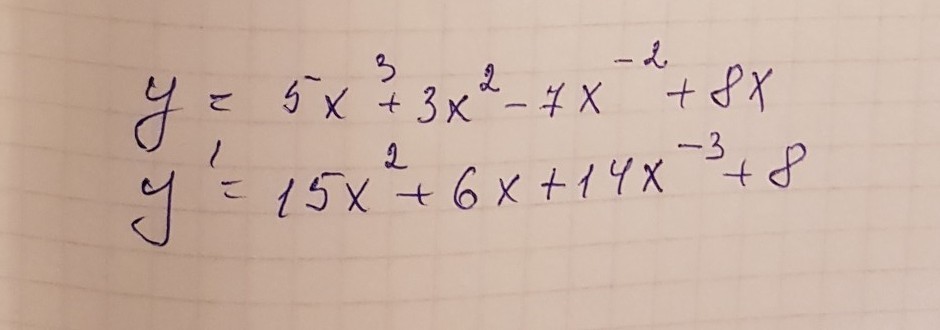 y = 5x³ + 3x² - 7x⁻² + 8x
y' = 15x² + 6x + 14x⁻³ + 8